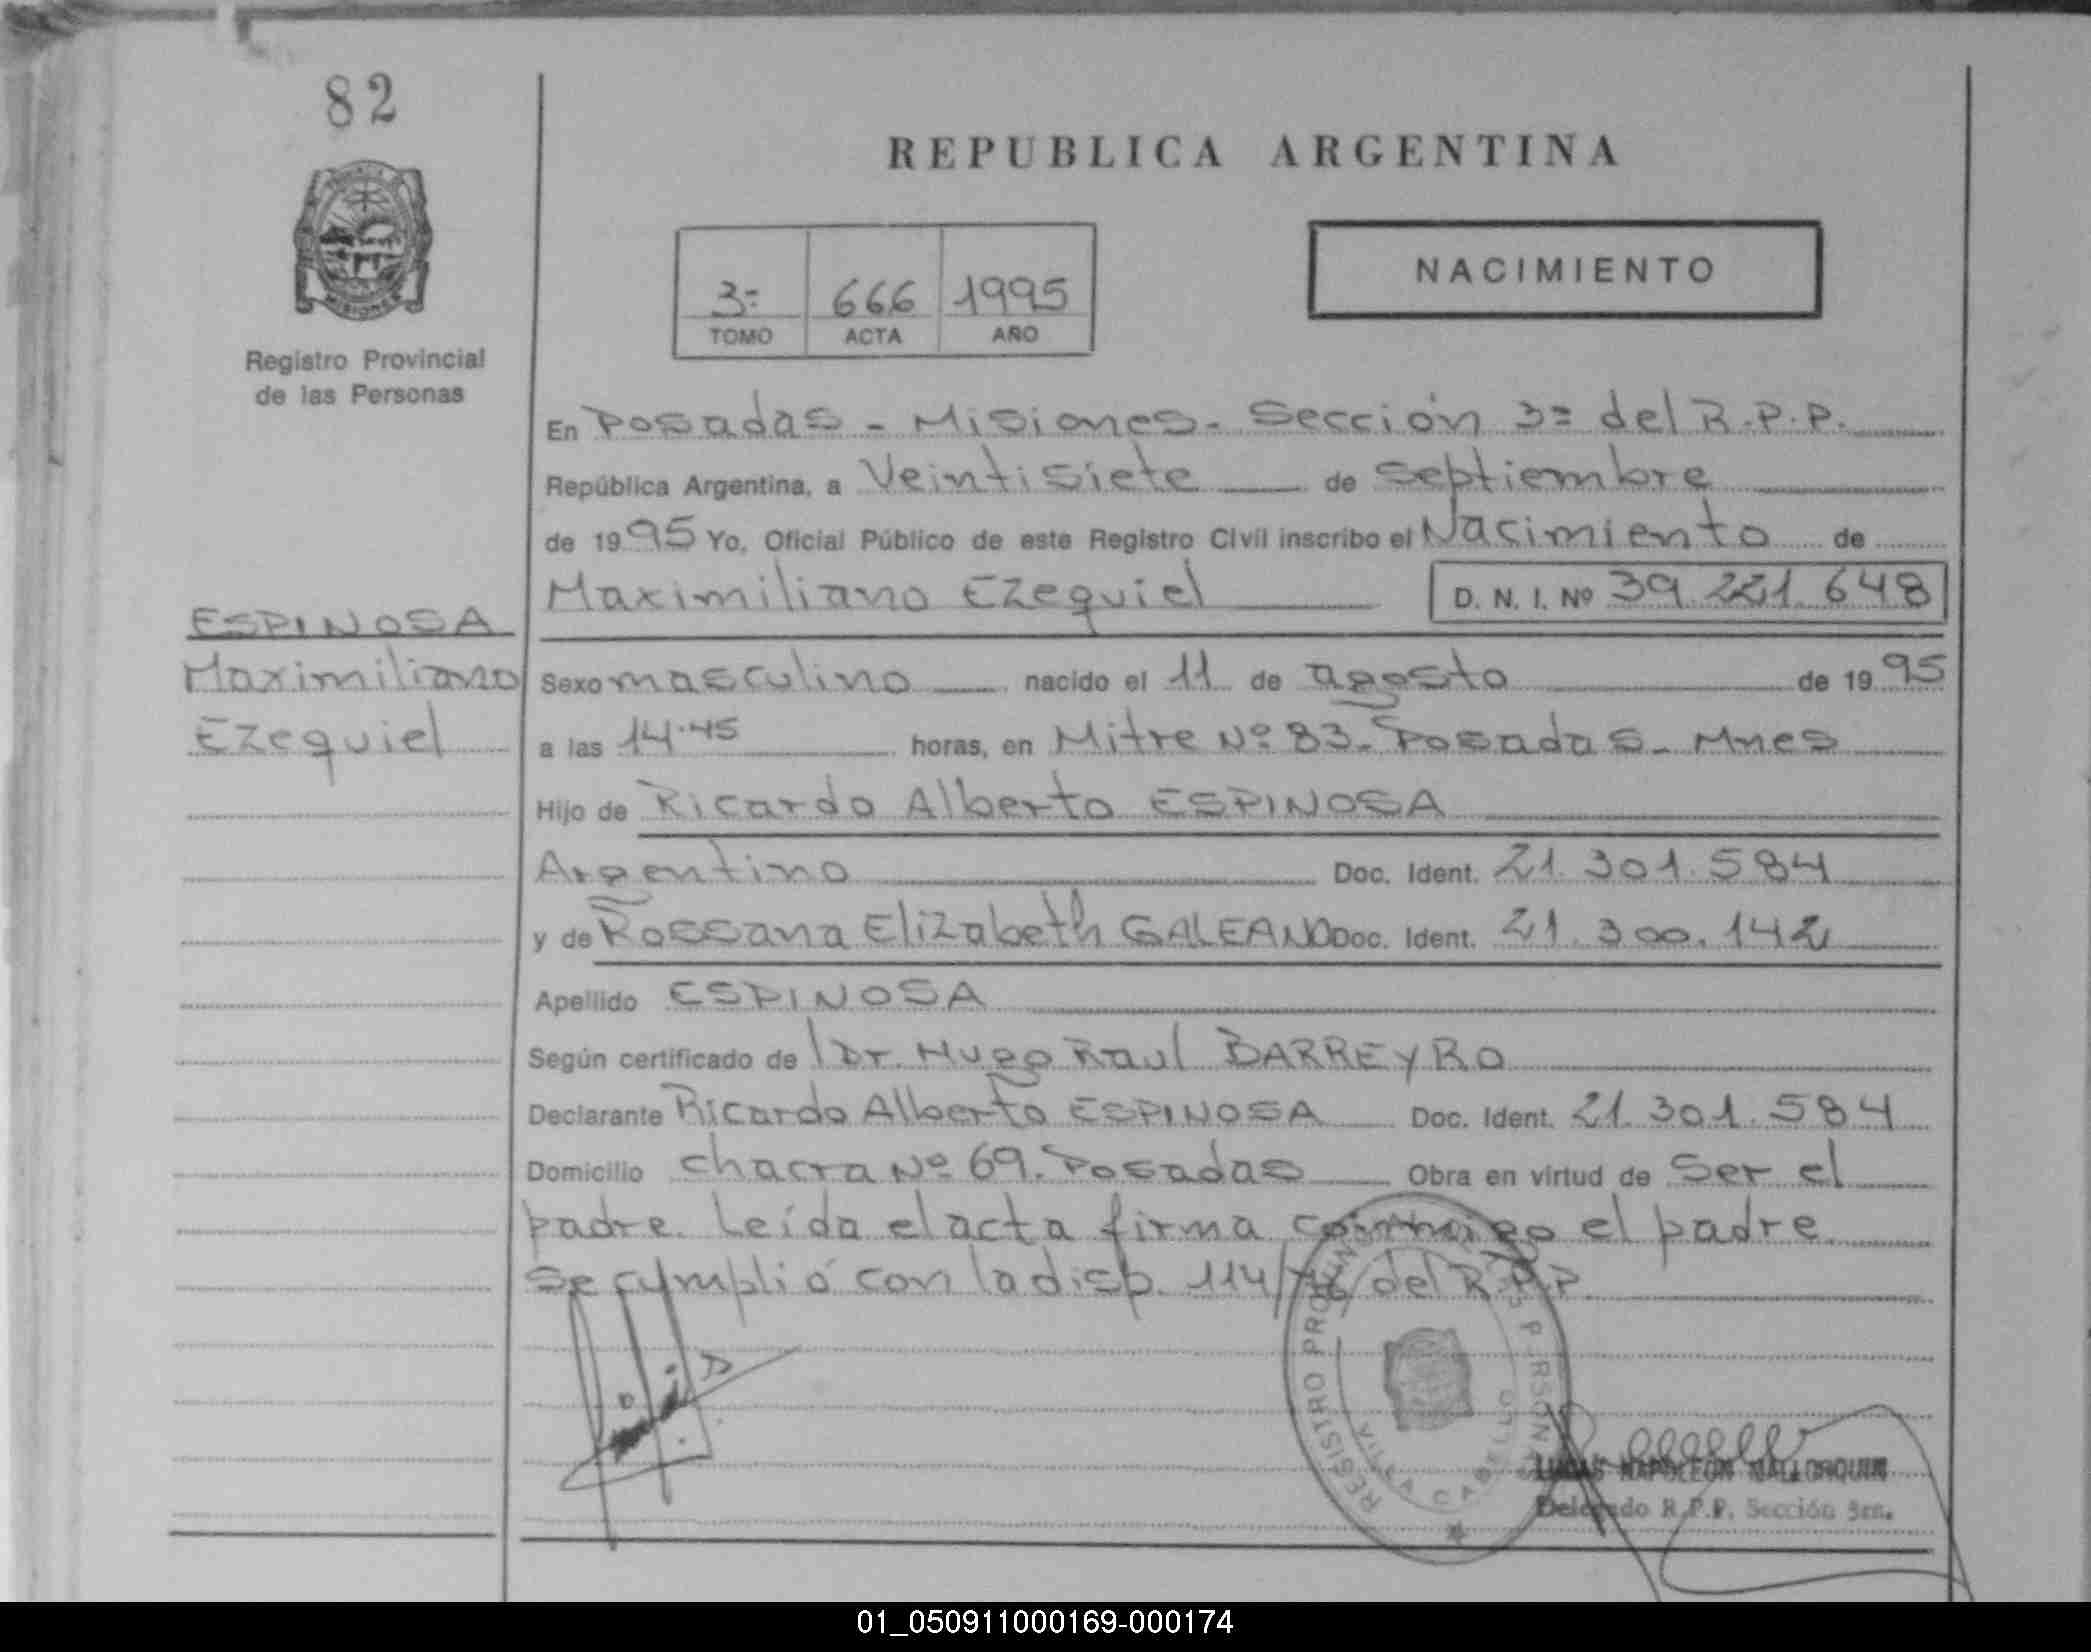 82
REPUBLICA ARGENTINA
MISIONES
Registro Provincial
de las Personas
3ª 666 1995
TOMO ACTA AÑO
NACIMIENTO
En Posadas - Misiones - Sección 3ª del R.P.P.
República Argentina, a Veintisiete de Septiembre
de 1995 Yo, Oficial Público de este Registro Civil inscribo el Nacimiento de
Maximiliano Ezequiel D. N. I. Nº 39.221.648
ESPINOSA
Maximiliano
Ezequiel
Sexo masculino nacido el 11 de agosto de 1995
a las 14.45 horas, en Mitre Nº 83 - Posadas - Mnes
Hijo de Ricardo Alberto ESPINOSA
Argentino Doc. Ident. 21.301.584
y de Rossana Elizabeth GALEANO Doc. Ident. 21.300.142
Apellido ESPINOSA
Según certificado de Dr. Hugo Raul BARREYRO
Declarante Ricardo Alberto ESPINOSA Doc. Ident. 21.301.584
Domicilio chacra Nº 69. Posadas Obra en virtud de Ser el
padre. Leída el acta firma conmigo el padre.
Se cumplió con la disp. 114/76 del R.P.P.
REGISTRO PROVINCIAL DE LAS PERSONAS
VILLA CABELLO
LUCAS NAPOLEON MALLORQUIN
Delegado R.P.P. Sección 3ra.
01_050911000169-000174